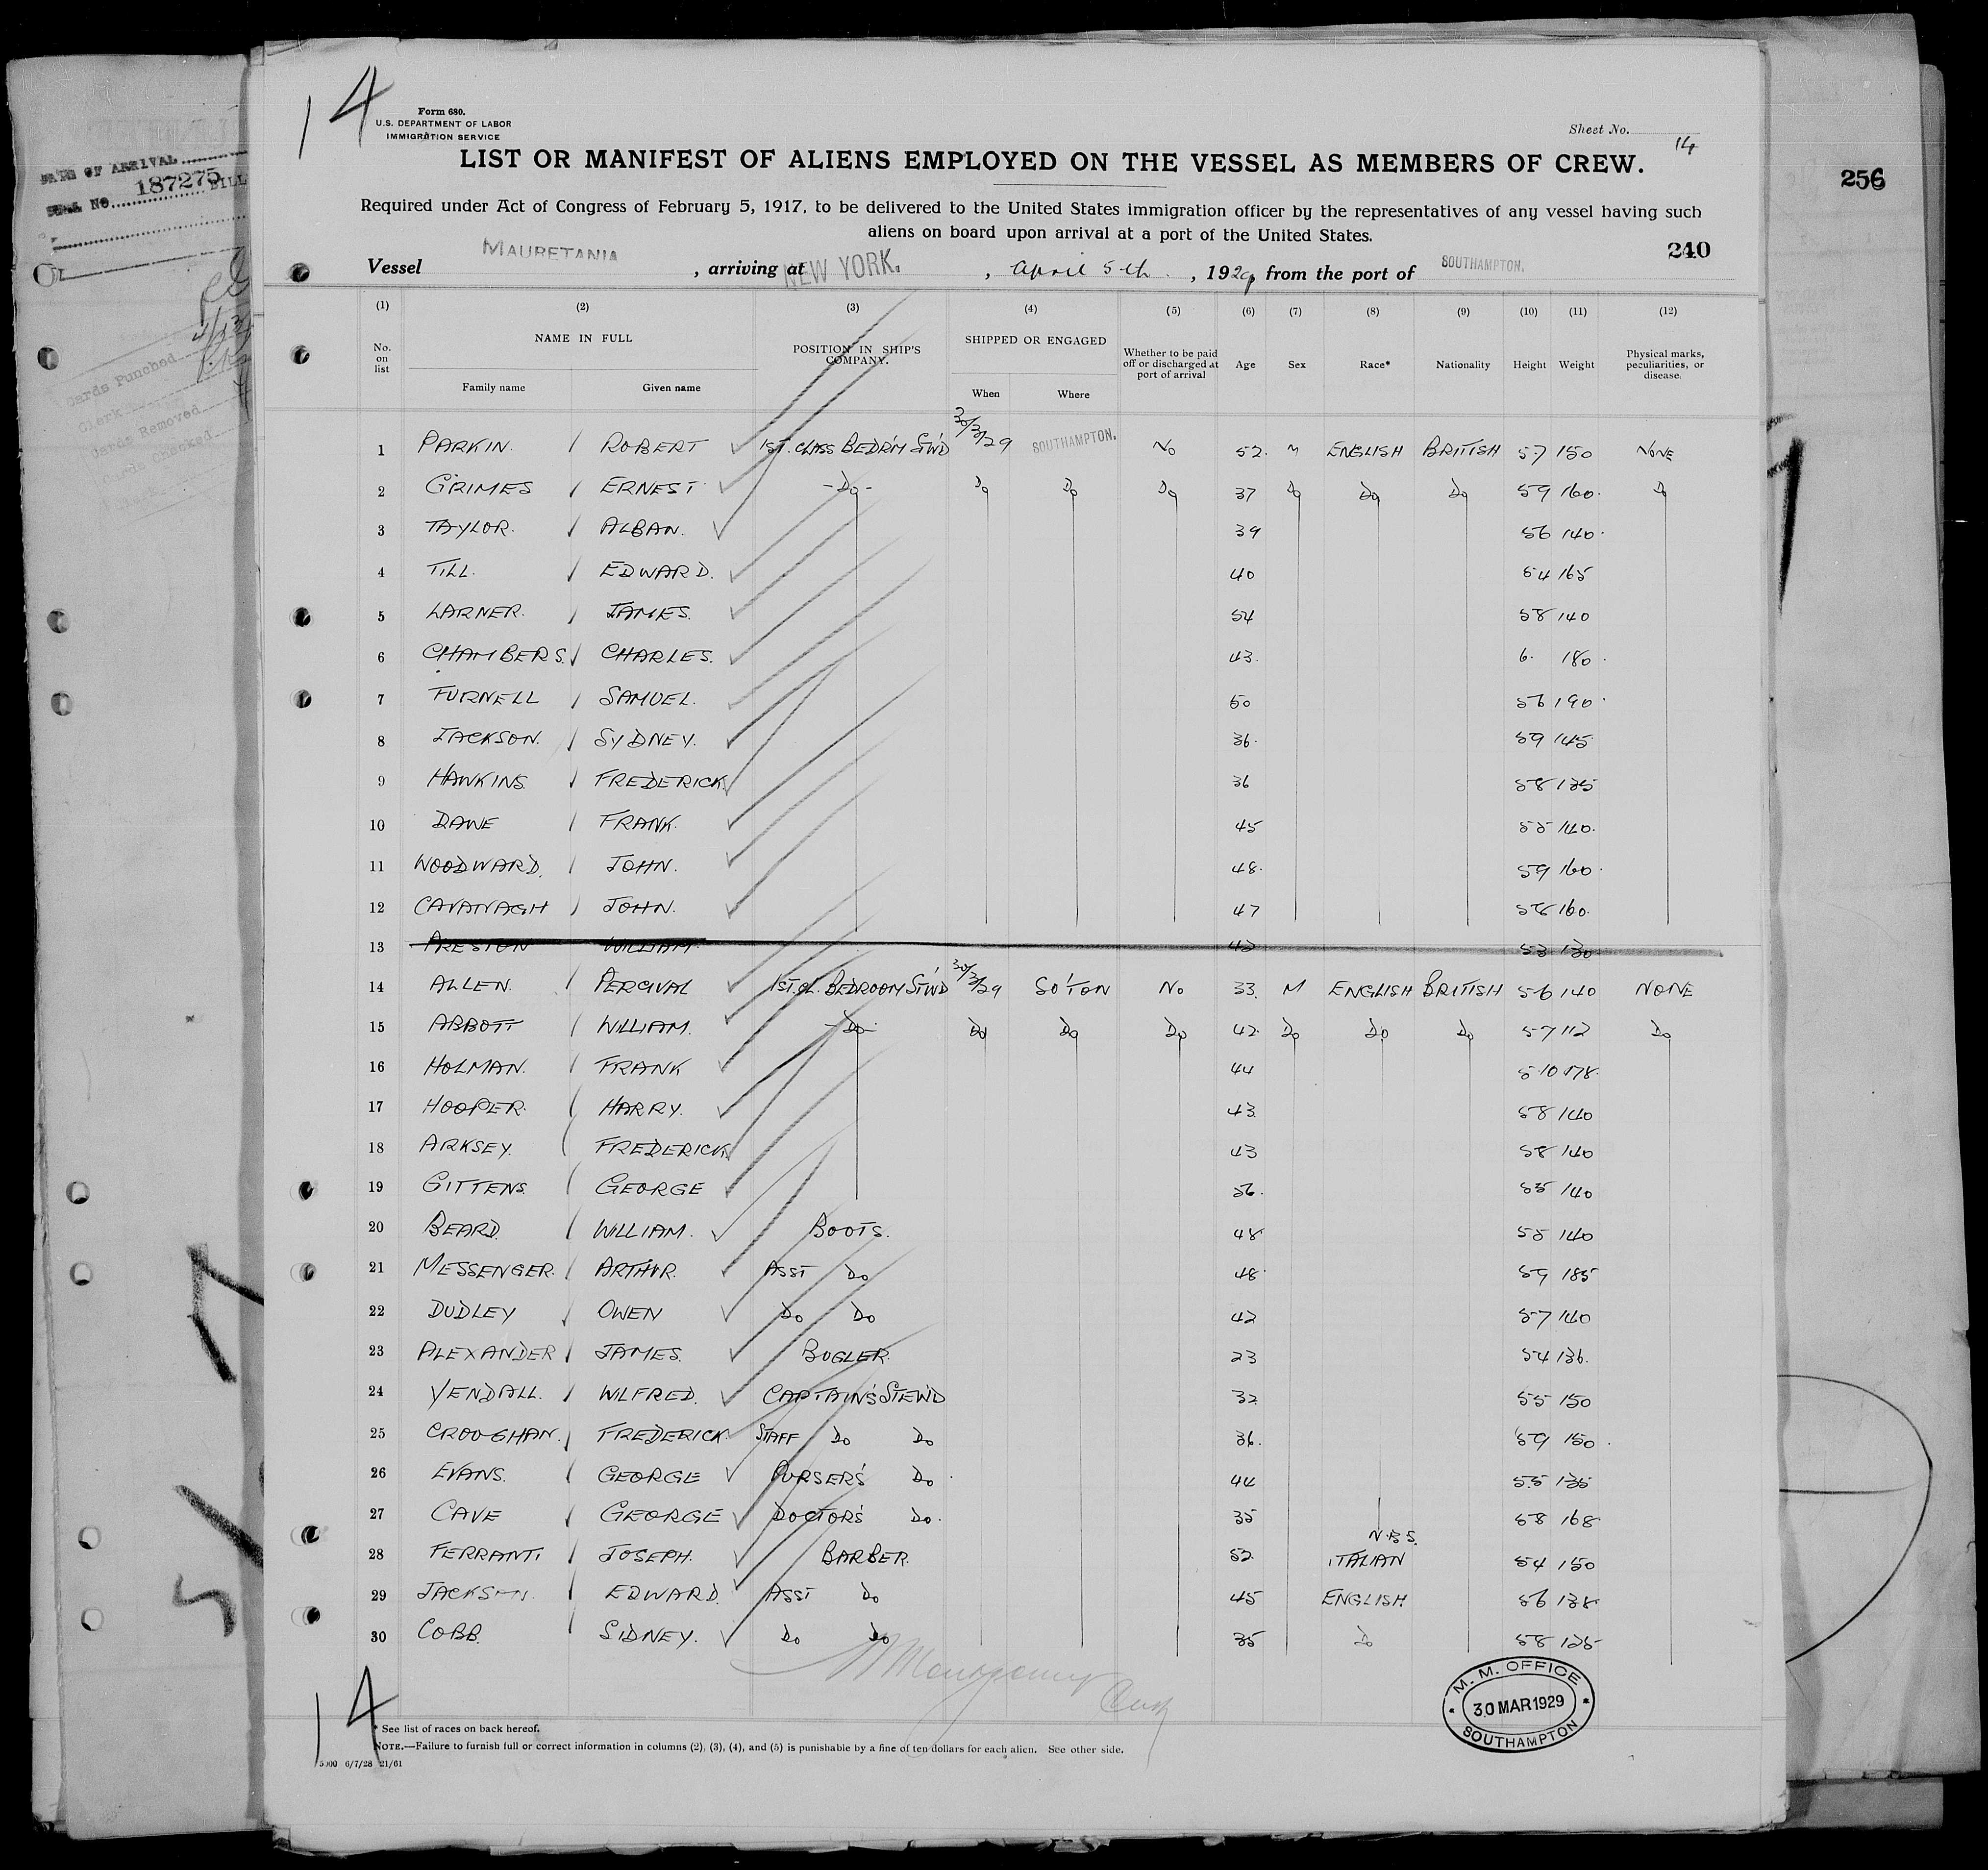 14
Form 680.
U.S. DEPARTMENT OF LABOR
IMMIGRATION SERVICE
Sheet No. 14
LIST OR MANIFEST OF ALIENS EMPLOYED ON THE VESSEL AS MEMBERS OF CREW.
DATE OF ARRIVAL
187275
256
Required under Act of Congress of February 5, 1917, to be delivered to the United States immigration officer by the representatives of any vessel having such
aliens on board upon arrival at a port of the United States.
240
Vessel MAURETANIA, arriving at NEW YORK., April 5th, 1929 from the port of SOUTHAMPTON.
(1) (2) (3) (4) (5) (6) (7) (8) (9) (10) (11) (12)
No. on list NAME IN FULL POSITION IN SHIP'S COMPANY. SHIPPED OR ENGAGED Whether to be paid off or discharged at port of arrival Age Sex Race* Nationality Height Weight Physical marks, peculiarities, or disease.
Family name Given name When Where
Cards Punched
Clerk
Cards Removed
1 PARKIN. ROBERT 1ST. CLASS BEDR'M ST'WD 30/3/29 SOUTHAMPTON. No 52. M ENGLISH BRITISH 57 150 NONE
2 GRIMES ERNEST -Do- Do Do Do 37 Do Do Do 59 160. Do
3 TAYLOR. ALBAN. 39 56 140.
4 TILL. EDWARD. 40 54 165
5 LARNER. JAMES. 54 58 140
6 CHAMBERS. CHARLES. 43. 6. 180.
7 FURNELL SAMUEL. 50 56 190.
8 JACKSON. SYDNEY. 36. 59 145
9 HAWKINS. FREDERICK. 36 58 135
10 DAWE FRANK. 45 55 140.
11 WOODWARD. JOHN. 48. 59 160.
12 CAVANAGH JOHN. 47 58 160.
13 PRESTON WILLIAM 42 53 130
14 ALLEN. PERCIVAL 1ST. CL. BEDROOM ST'WD 30/3/29 SO'TON No 33. M ENGLISH BRITISH 56 140 NONE
15 ABBOTT WILLIAM. -Do- Do Do Do 42. Do Do Do 57 112 Do
16 HOLMAN. FRANK 44 510 178.
17 HOOPER. HARRY. 43. 58 140
18 ARKSEY. FREDERICK. 43 58 140
19 GITTENS. GEORGE 56. 55 140
20 BEARD. WILLIAM. BOOTS. 48 55 140
21 MESSENGER. ARTHUR. ASST Do 48 59 185
22 DUDLEY OWEN Do Do 42 57 140
23 ALEXANDER JAMES. BUGLER. 23 54 136.
24 YENDALL. WILFRED. CAPTAIN'S STEW'D 32 55 150
25 CROUGHAN. FREDERICK STAFF Do Do 36. 59 150.
26 EVANS. GEORGE PURSER'S Do. 44 55 135
27 CAVE GEORGE DOCTOR'S Do. 35 58 168
N.B.S.
28 FERRANTI JOSEPH. BARBER. 52. ITALIAN 54 150
29 JACKSON. EDWARD. ASST Do 45 ENGLISH. 56 138
30 COBB. SIDNEY. Do Do 35 Do 58 125
M.M. OFFICE
30 MAR 1929
SOUTHAMPTON
14
* See list of races on back hereof.
NOTE.—Failure to furnish full or correct information in columns (2), (3), (4), and (5) is punishable by a fine of ten dollars for each alien. See other side.
5000 6/7/28 21/61